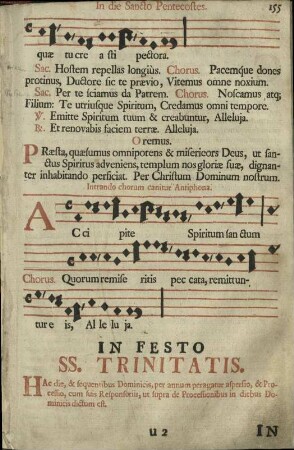 In die Sancto Pentecostes. 155
quæ tu cre a sti pectora.
Sac. Hostem repellas longiùs. Chorus. Pacemque dones
protinus, Ductore sic te prævio, Vitemus omne noxium.
Sac. Per te sciamus da Patrem. Chorus. Noscamus atq;
Filium: Te utriusque Spiritum, Credamus omni tempore.
℣. Emitte Spiritum tuum & creabuntur, Alleluja.
℟. Et renovabis faciem terræ. Alleluja.
Oremus.
PRæsta, quæsumus omnipotens & misericors Deus, ut san-
ctus Spiritus adveniens, templum nos gloriæ suæ, dignan-
ter inhabitando perficiat. Per Christum Dominum nostrum.
Intrando chorum canitur Antiphona.
AC ci pite Spiritum san ctum
Chorus. Quorum remise ritis pec cata, remittun-
tur e is, Al le lu ja.
IN FESTO
SS. TRINITATIS.
HAc die, & sequentibus Dominicis, per annum peragatur aspersio, & Pro-
cessio, cum suis Responsoriis, ut supra de Processionibus in diebus Do-
minicis dictum est.
u 2 IN